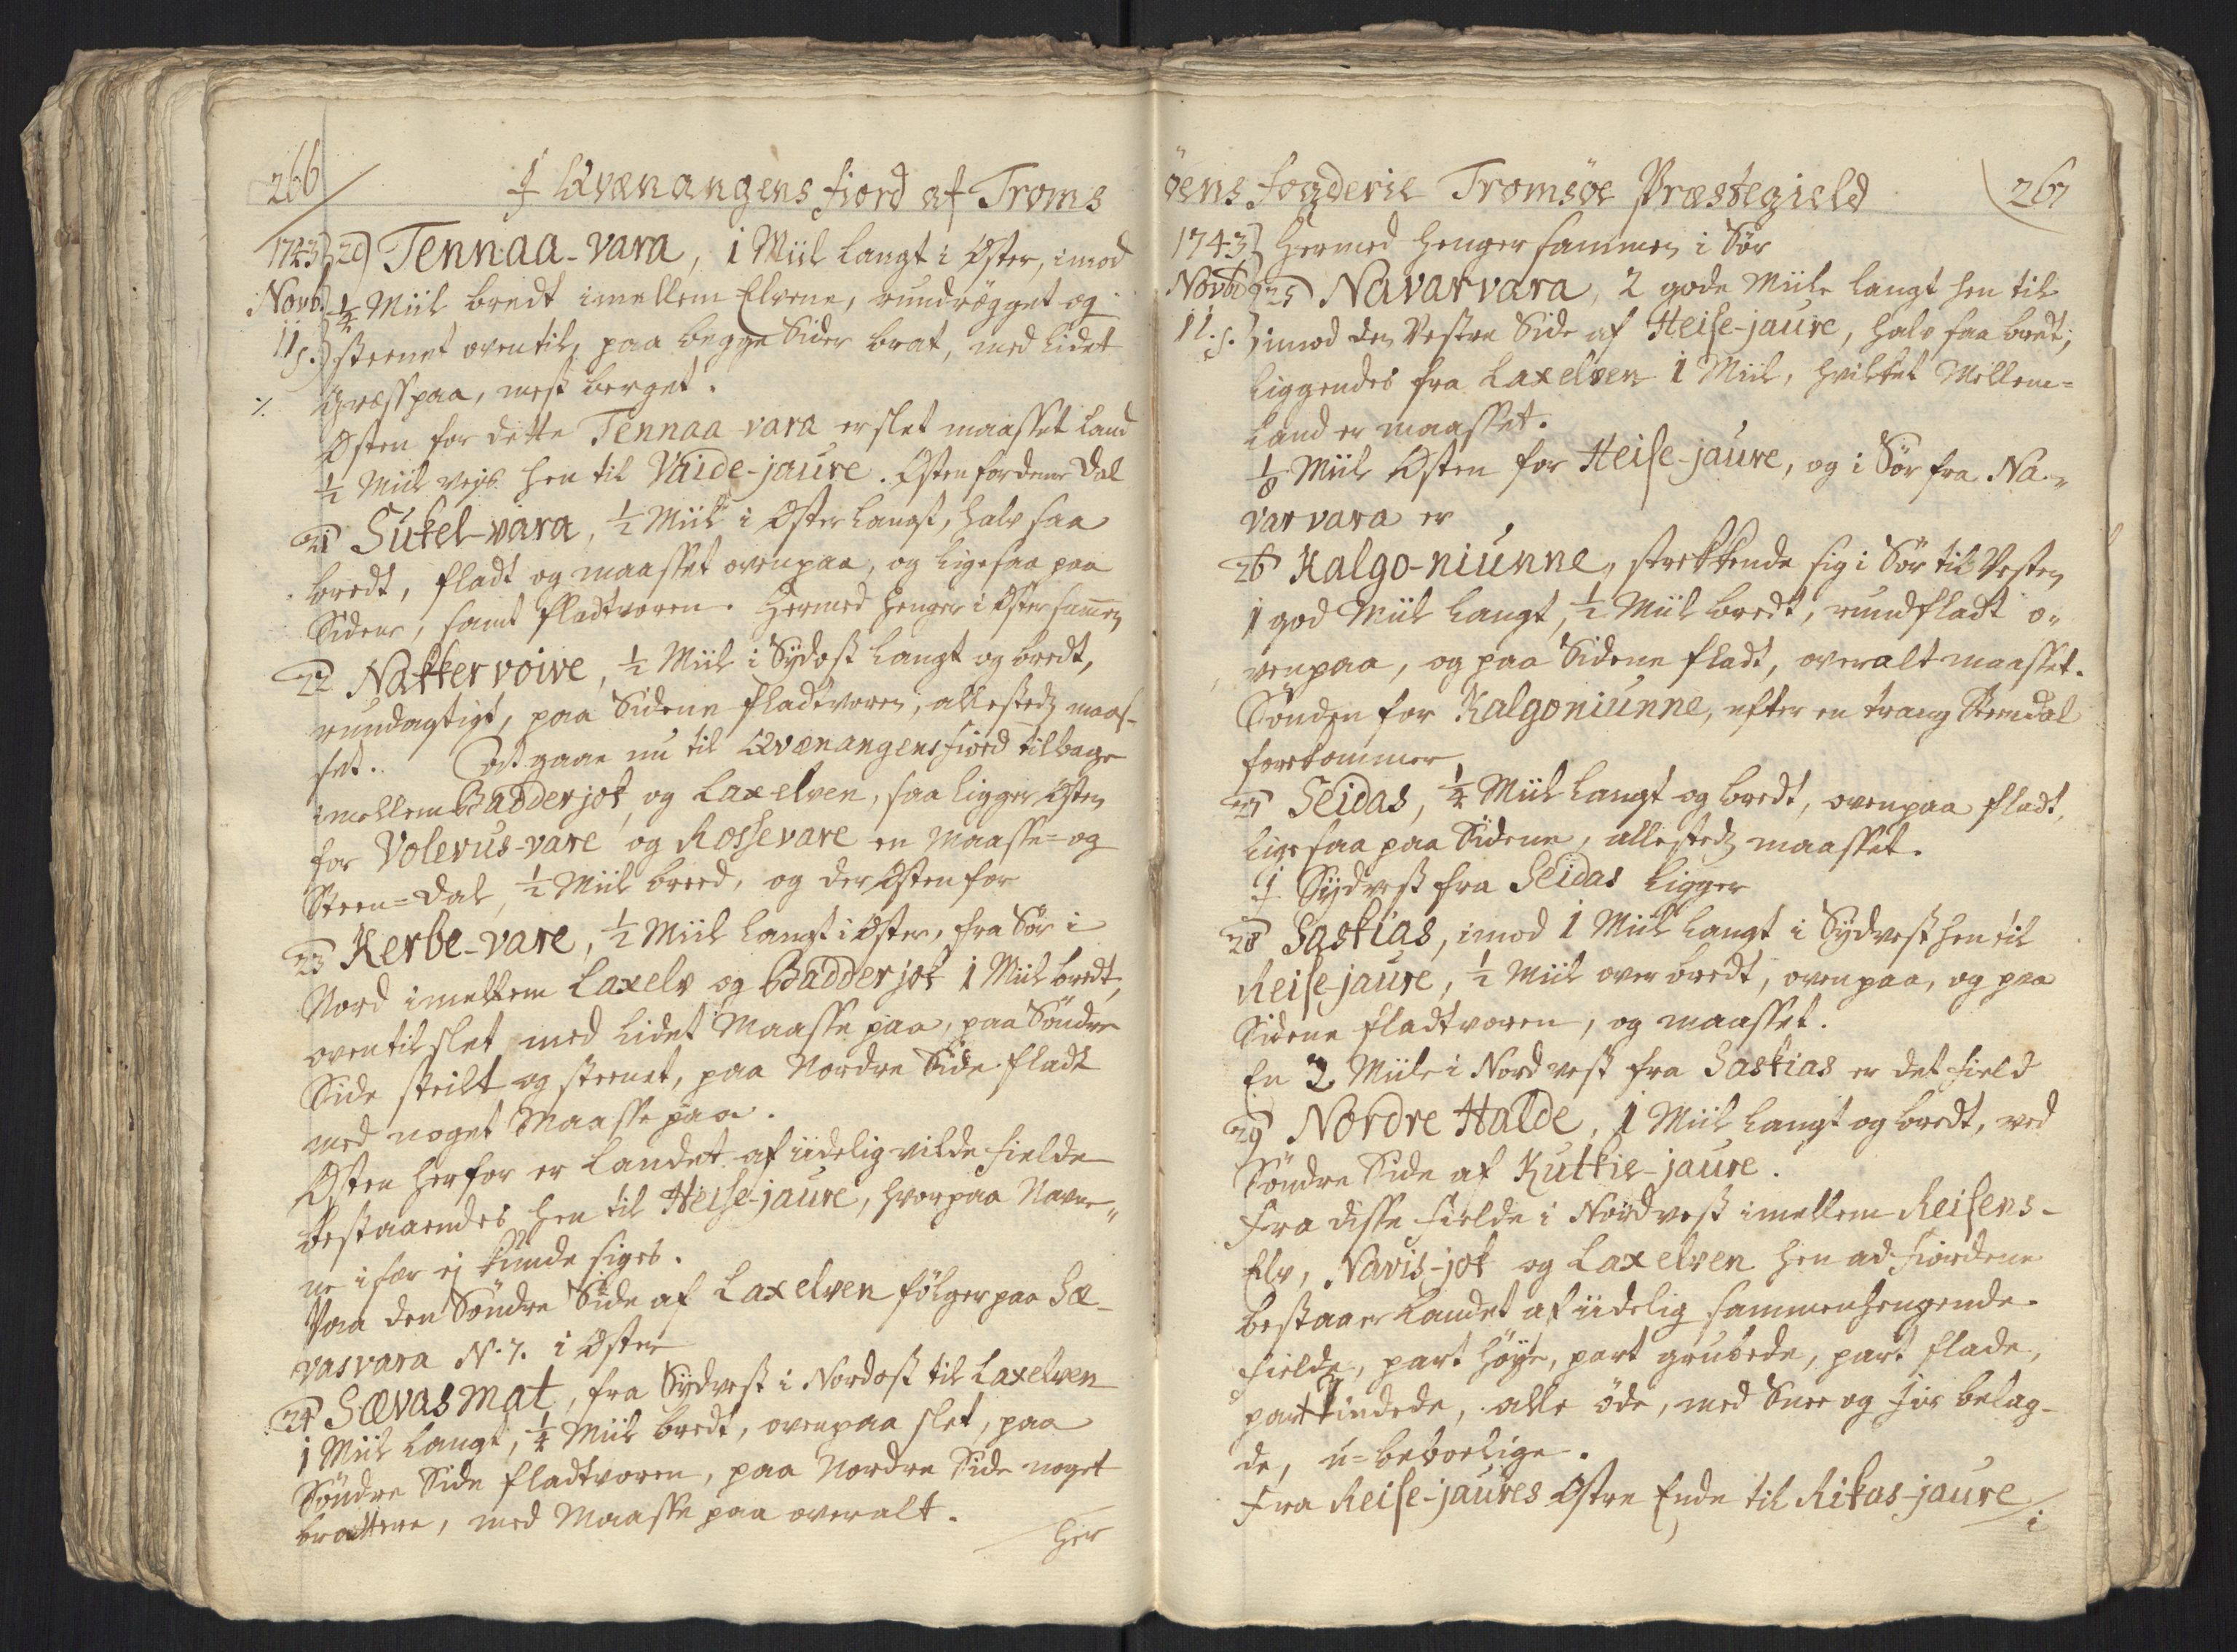 266
I Qvænangens fiord af Troms
1743 20) Tennaa-vara, 1 Miil langt i Øster, imod
Novb. 1/4 Miil bredt imellem Elvene, rundrögget og
11 s. steenet oventil, paa begge Sider brat, med lidet
Græss paa, mest berget.
Østen for dette Tennaa-vara er slet maasset Land
1/2 Miil vejs hen til Vaide-jaure. Østen for denne Dal
21 Sukel-vara, 1/2 Miil i Øster langt, halv saa
bredt, fladt og maasset ovenpaa, og ligesaa paa
Sidene, samt fladtvoren. Hermed henger i Øster samen
22 Nakkervoive, 1/2 Miil i Sydost langt og bredt,
rundagtigt, paa Sidene fladtvoren, allesteds maas-
set. At gaae nu til Qvænangensfiord tilbage
imellem Badderjok og Laxelven, saa ligger Østen
for Volevus-vare og Rossevare en Maasse- og
Steen-Dal, 1/2 Miil breed, og der Østen for
23 Kerbe-vare, 1/2 Miil langt i Øster, fra Sør i
Nord imellem Laxelv og Badderjok 1 Miil bredt,
oventil slet med lidet Maasse paa, paa Söndre
Side steilt og steenet, paa Nordre Side fladt
med noget Maasse paa.
Østen herfor er Landet af üdelig vilde fielde
bestaaendes hen til Heise-jaure, hvorpaa Navne-
ne især ej kunde siges.
Paa den Söndre Side af Laxelven fölger paa Sæ-
vasvara N. 7. i Øster
24 Sævasmat, fra Sydvest i Nordost til Laxelven
1 Miil langt, 1/4 Miil bredt, ovenpaa slet, paa
Söndre Side fladtvoren, paa Nordre Side noget
brattere, med Maasse paa overalt.
Her
öens fogderie Tromsöe Præstegield
267
1743 Hermed henger sammen i Sör
Novb. 25 Navarvara, 2 gode Miile langt hen til
11. s. imod den Vestre Side af Heise-jaure, halv saa bredt,
liggendes fra Laxelven 1 Miil, hvilket Mellem-
Land er maasset.
1/8 Miil Østen for Heise-jaure, og i Sör fra Na-
varvara er
26 Kalgo-niunne, strekkende sig i Sör til Vesten
1 god Miil langt, 1/2 Miil bredt, rundfladt o-
venpaa, og paa Sidene fladt, overalt maasset.
Sönden for Kalgoniunne, efter en trang Steendal
forekommer
27 Seidas, 1/4 Miil langt og bredt, ovenpaa fladt,
ligesaa paa Sidene, allesteds maasset.
I Sydvest fra Seidas ligger
28 Saskias, imod 1 Miil langt i Sydvest hen til
Reise-jaure, 1/2 Miil over bredt, ovenpaa, og paa
Sidene fladtvoren, og maasset.
En 2 Miile i Nordvest fra Saskias er det field
29 Nordre Halde, 1 Miil langt og bredt, ved
Söndre Side af Kutkie-jaure.
Fra disse fielde i Nordvest imellem Reisens-
Elv, Navis-jok og Laxelven hen ad fiordene
bestaaer Landet af üdelig sammenhengende
fielde, part höye, part grubede, part flade,
part tindede, alle öde, med Snee og Iis belag-
de, u-beboelige.
Fra Reise-jaures Østre Ende til Rikas-jaure
i